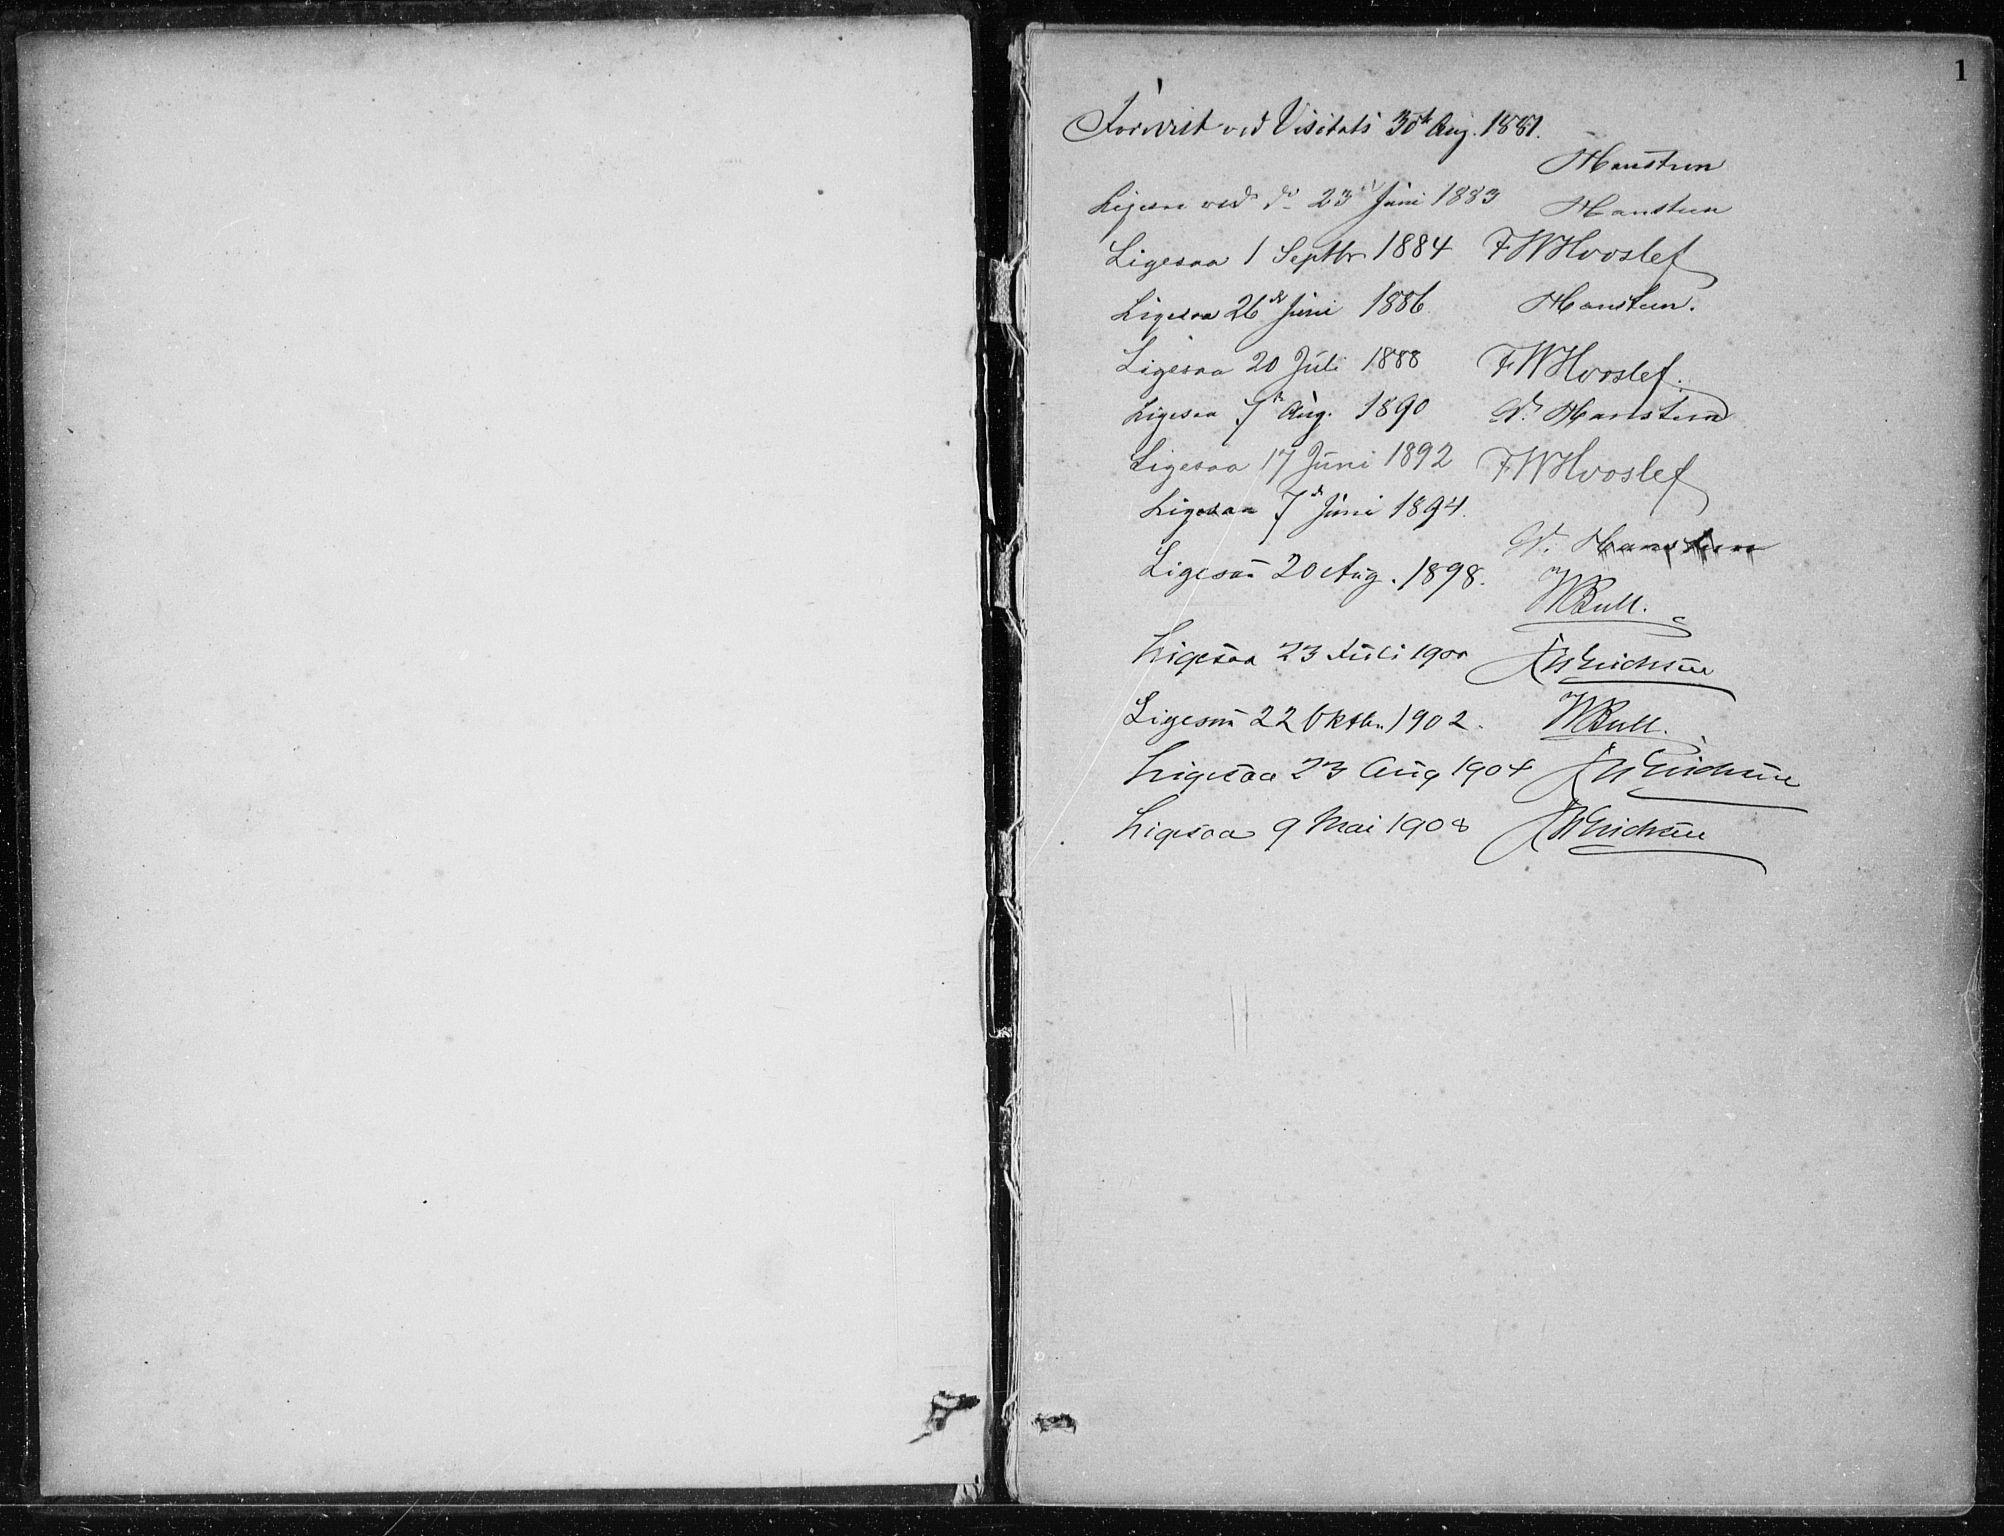 1
Forevist ved Visitats 30te Aug. 1881.
Hansteen
Ligesaa ved do 23de Juni 1883 Hansteen
Ligesaa 1 Septbr 1884 F W Hvoslef
Ligesaa 26de Juni 1886. Hansteen.
Ligesaa 20 Juli 1888 F W Hvoslef.
Ligesaa 7de Aug. 1890 W. Hansteen
Ligesaa 17 Juni 1892 F W Hvoslef
Ligesaa 7de Juni 1894.
W. Hansteen
Ligesaa 20 Aug. 1898.
Bull.
Ligesaa 23 Juli 1900 Erichsen
Ligesaa 22 Oktbr. 1902. Bull.
Ligesaa 23 Aug 1904 Erichsen
Ligesaa 9 Mai 1908 Erichsen